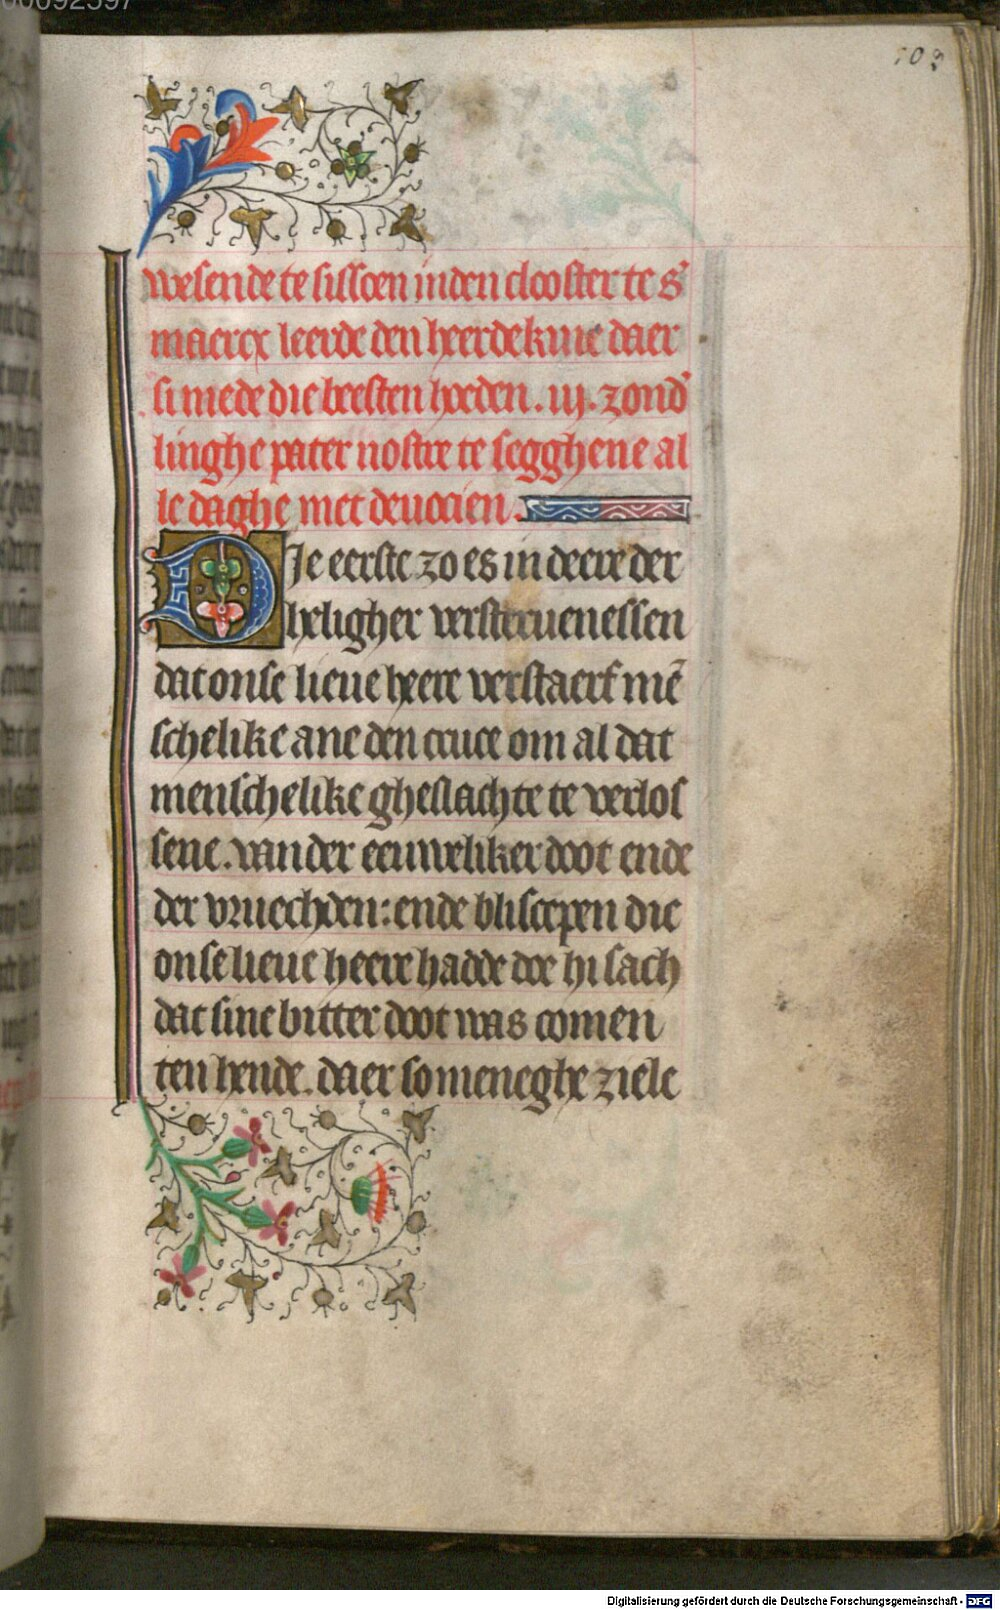 103
wesende te sissoen in den clooster te s'
maercx leerde den heerdekine daer
si mede die beesten hoeden. iij. zond'
linghe pater nostre te segghene al
le daghe met deuocien.
Die eerste zo es in deere der
heligher versteruenessen
dat onse lieue heere verstaerf mē
schelike ane den cruce om al dat
menschelike gheslachte te verlos
sene. vander eeuweliker doot ende
der vruechden: ende bliscepen die
onse lieue heere hadde doe hi sach
dat sine bitter doot was comen
ten hende. daer so meneghe ziele
Digitalisierung gefördert durch die Deutsche Forschungsgemeinschaft - DFG